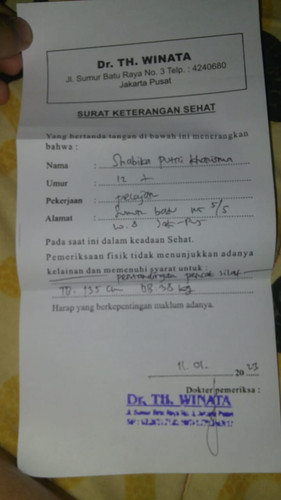 Dr. TH. WINATA
Jl. Sumur Batu Raya No. 3 Telp. : 4240680
Jakarta Pusat
SURAT KETERANGAN SEHAT
Yang bertanda tangan di bawah ini menerangkan
bahwa :
Nama : Shabika Putri
Umur : 12 t
Pekerjaan : pelajar
Alamat : Sumur batu 5/5
Pada saat ini dalam keadaan Sehat.
Pemeriksaan fisik tidak menunjukkan adanya
kelainan dan memenuhi syarat untuk :
pertandingan pencak silat
TB. 155 cm BB 38 kg
Harap yang berkepentingan maklum adanya.
11. 01. 20
Dokter pemeriksa :
Dr. TH. WINATA
Jl. Sumur Batu Raya No. 3, Jakarta Pusat